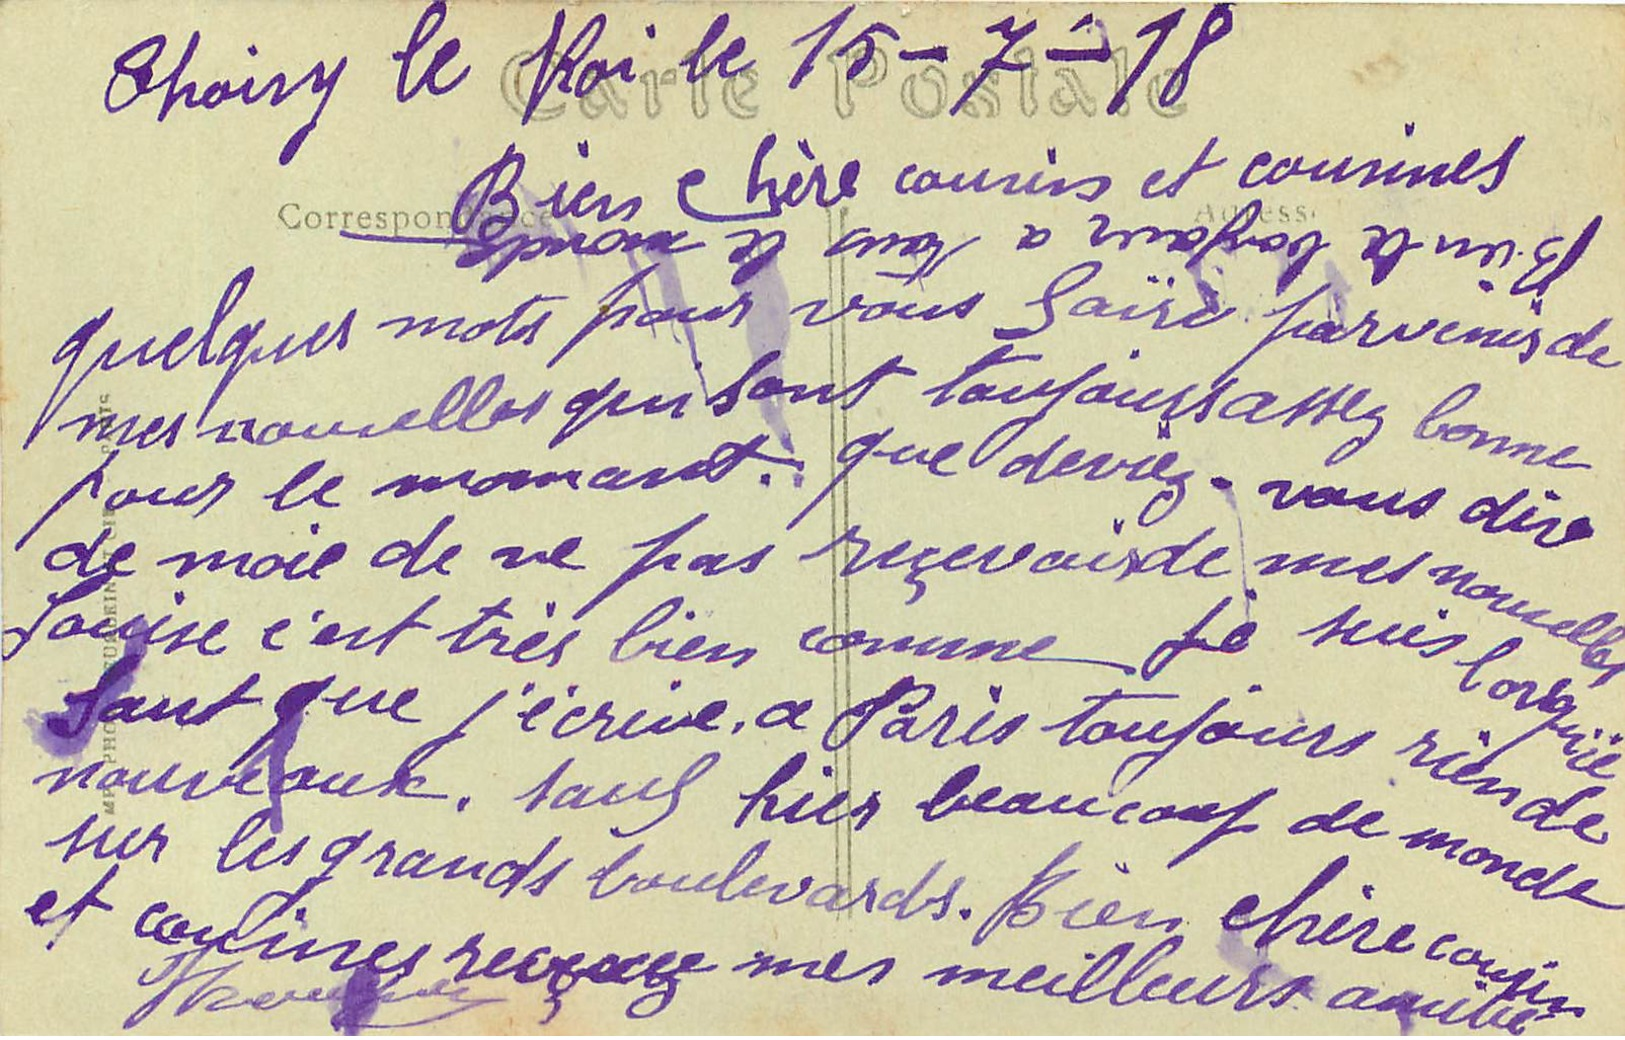 Choisy le Roi le 15-7-18
Carte Postale
Bien Chère cousins et cousines
Correspondance
Adresse
Bien le bonjour a tous le monde
quelques mots pour vous faire parvenir de
mes nouvelles qui sont toujours assez bonne
pour le momant. que deviez-vous dire
de moie de ne pas reçevoir de mes nouvelles
Louise c'est très bien comme je suis lorsquie
faut que j'écrive. a Paris toujours rien de
nouveaux. sauf hier beaucoup de monde
sur les grands boulevards. Bien chère cousin
et cousines reçevez mes meilleurs amitié